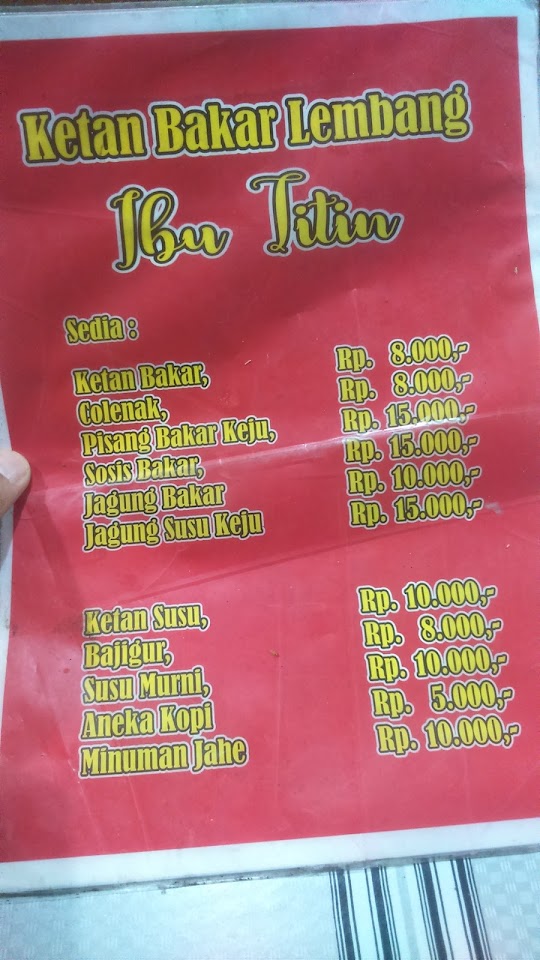 Ketan Bakar Lembang
Ibu Titin
Sedia :
Ketan Bakar, Rp. 8.000,-
Colenak, Rp. 8.000,-
Pisang Bakar Keju, Rp. 15.000,-
Sosis Bakar, Rp. 15.000,-
Jagung Bakar Rp. 10.000,-
Jagung Susu Keju Rp. 15.000,-
Ketan Susu, Rp. 10.000,-
Bajigur, Rp. 8.000,-
Susu Murni, Rp. 10.000,-
Aneka Kopi Rp. 5.000,-
Minuman Jahe Rp. 10.000,-